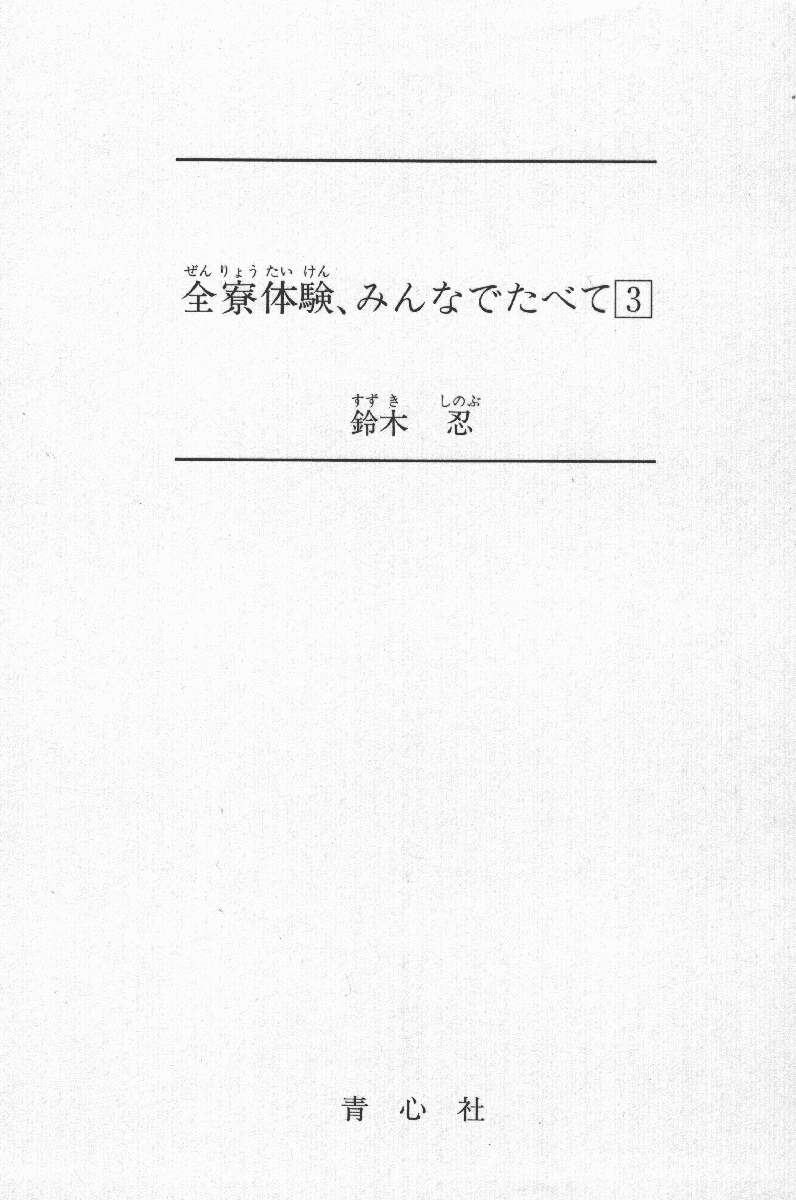 ぜんりょうたいけん
全寮体験、みんなでたべて3
すずき しのぶ
鈴木 忍
青心社